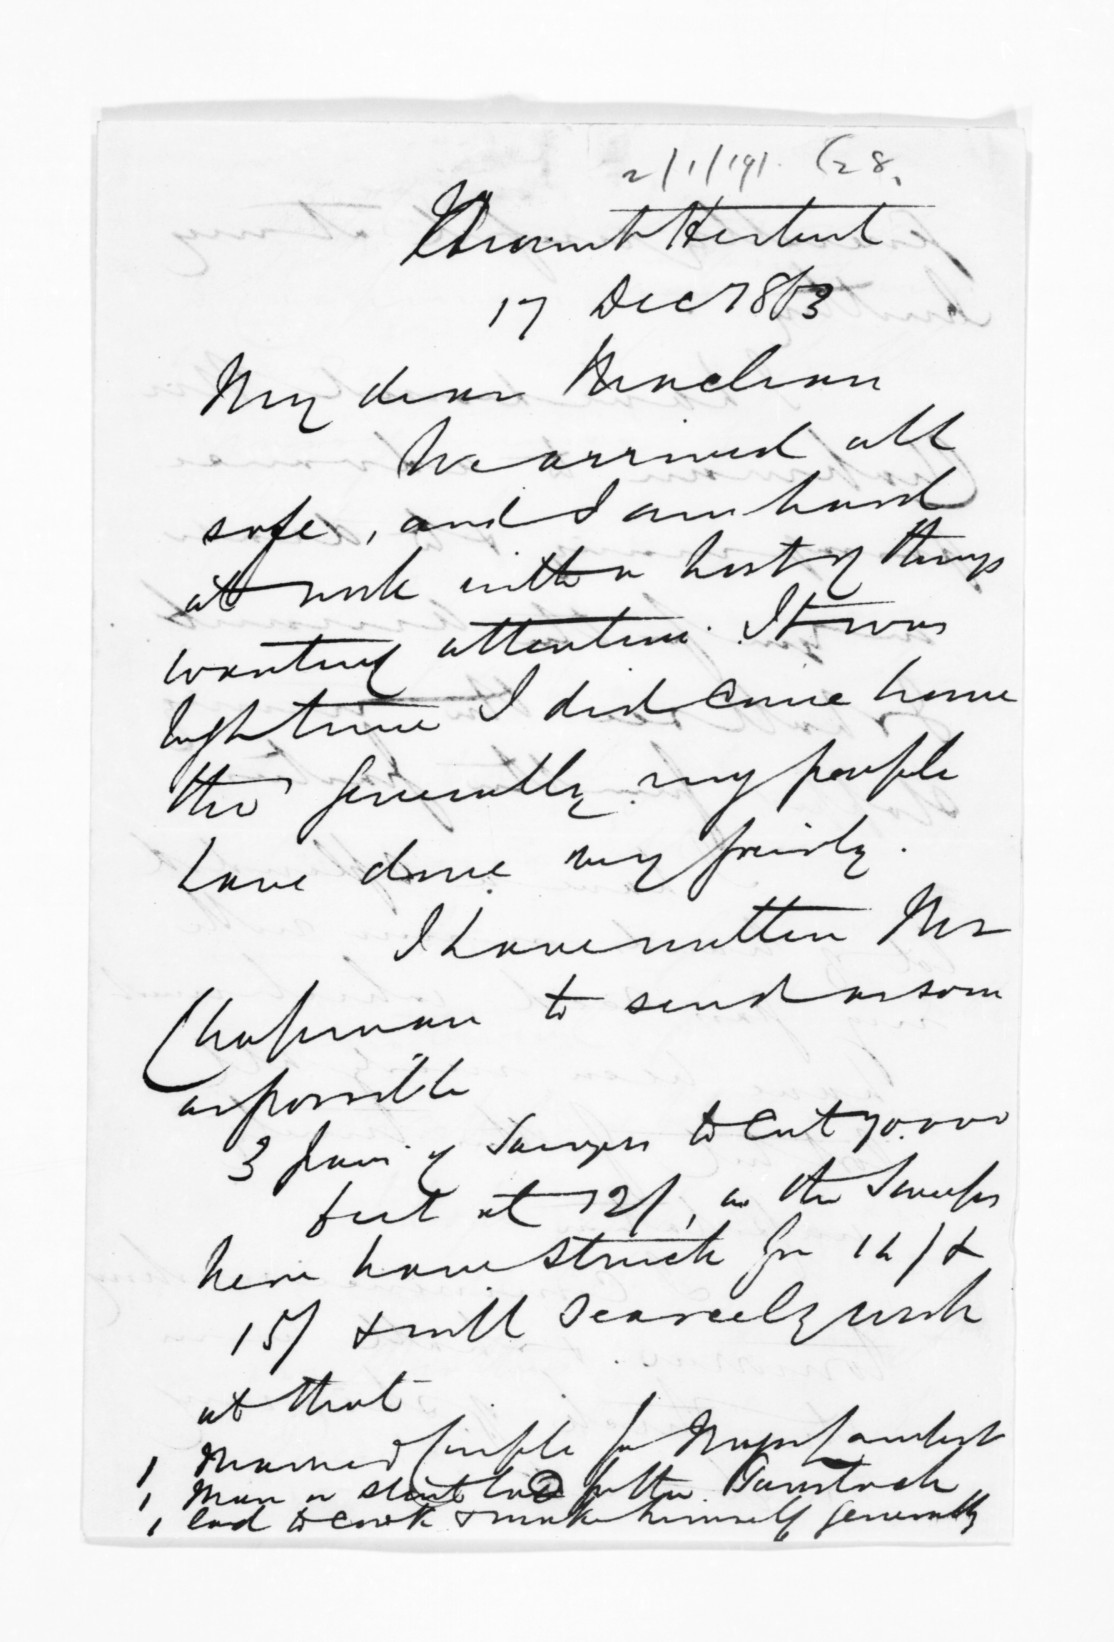 2/1/191. (28.
Mount Herbert
17 Dec 1863
My dear Maclean
We arrived all
safe, and I am hard
at work with a host of things
wanting attention. It was
high time I did come home
tho' generally my people
have done very fairly.
I have written Mr
Chapman to send as soon
as possible
3 pair of Sawyers to cut 70.000
feet at 12/, as the Sawyers
here have struck for 14/ &
15/ & will scarcely work
at that
1 Married Couple for Major Lambert
1 Man or stout lad for the
1 lad to cook & make himself generally